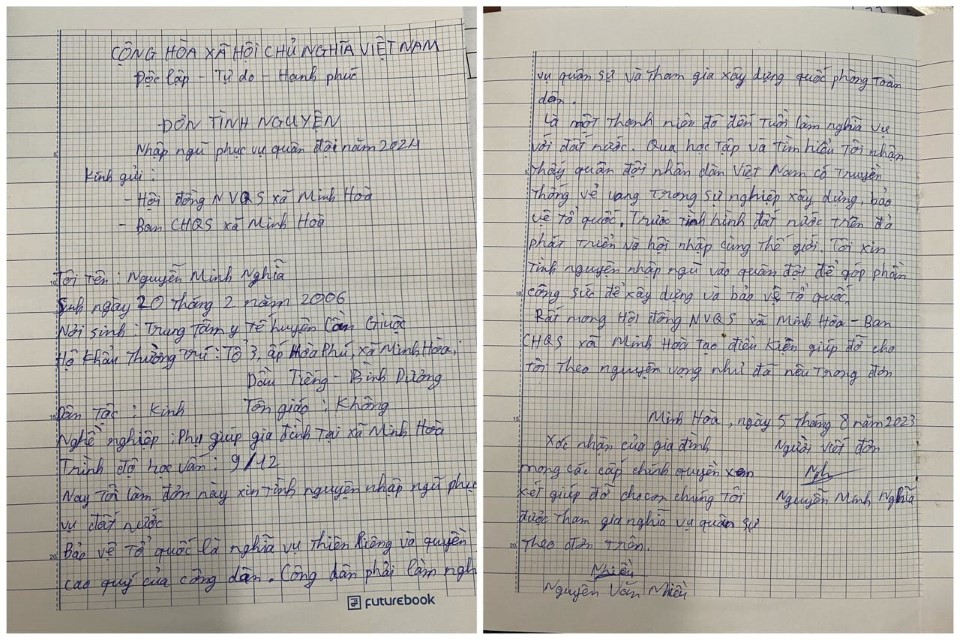 CỘNG HÒA XÃ HỘI CHỦ NGHĨA VIỆT NAM
Độc lập - Tự do - Hạnh phúc
ĐƠN TÌNH NGUYỆN
Nhập ngũ phục vụ quân đội năm 2024
Kính gửi :
- Hội đồng NVQS xã Minh Hoà
- Ban CHQS xã Minh Hoà
Tôi tên : Nguyễn Minh Nghĩa
Sinh ngày 20 tháng 2 năm 2006
Nơi sinh : Trung tâm y tế huyện Cần Giuộc
Hộ khẩu thường trú : Tổ 3, ấp Hòa Phú, xã Minh Hòa,
Dầu Tiếng - Bình Dương
Dân tộc : Kinh Tôn giáo : Không
Nghề nghiệp : Phụ giúp gia đình tại xã Minh Hoà
Trình độ học vấn : 9/12
Nay tôi làm đơn này xin tình nguyện nhập ngũ phục
vụ đất nước
Bảo vệ tổ quốc là nghĩa vụ thiên liêng và quyền
cao quý của công dân. Công dân phải làm ngh
FUTUREBOOK
vụ quân sự và tham gia xây dựng quốc phòng toàn
dân.
Là một thanh niên đã đến tuổi làm nghĩa vụ
với đất nước. Qua học tập và tìm hiểu tôi nhận
thấy quân đội nhân dân Việt Nam có truyền
thống vẻ vang trong sự nghiệp xây dựng, bảo
vệ tổ quốc. Trước tình hình đất nước trên đà
phát triển và hội nhập cùng thế giới. Tôi xin
tình nguyện nhập ngũ vào quân đội để góp phần
công sức để xây dựng và bảo vệ tổ quốc.
Rất mong Hội đồng NVQS xã Minh Hòa - Ban
CHQS xã Minh Hoà tạo điều kiện giúp đỡ cho
tôi theo nguyện vọng như đã nêu trong đơn
Minh Hòa, ngày 5 tháng 8 năm 2023
Xác nhận của gia đình Người viết đơn
mong các cấp chính quyền xem Ngh
xét giúp đỡ cho con chúng tôi Nguyễn Minh Nghĩa
được tham gia nghĩa vụ quân sự
theo đơn trên.
Nhiều
Nguyễn Văn Nhiều